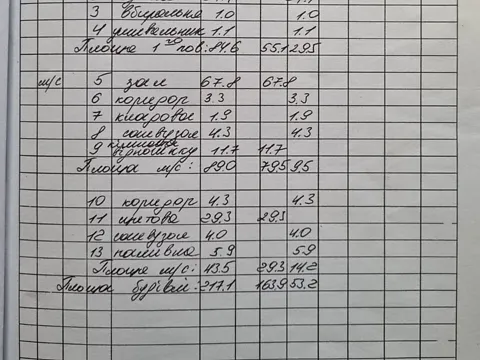 3 вбиральня 1.0 1.0
4 умивальник 1.1 1.1
Площа 1го пов: 84.6 55.1 29.5
м/с 5 зал 67.8 67.8
6 коридор 3.3 3.3
7 кладова 1.9 1.9
8 санвузол 4.3 4.3
9 кімната відпочинку 11.7 11.7
Площа м/с: 89.0 79.5 9.5
10 коридор 4.3 4.3
11 щитова 29.3 29.3
12 санвузол 4.0 4.0
13 паливна 5.9 5.9
Площа м/с: 43.5 29.3 14.2
Площа будівлі: 217.1 163.9 53.2